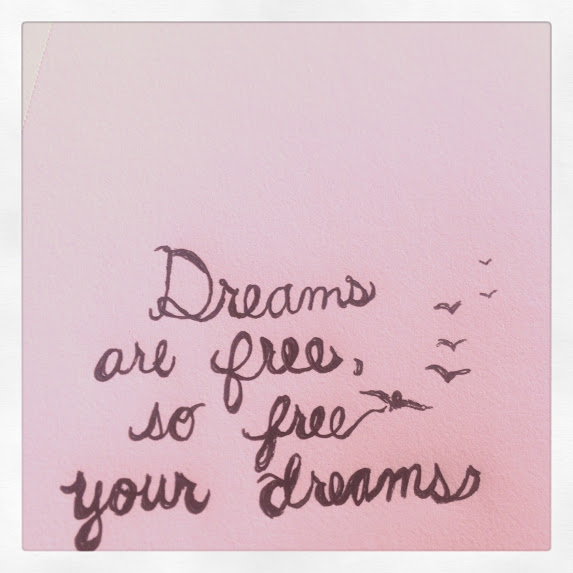 Dreams
are free,
so free
your dreams